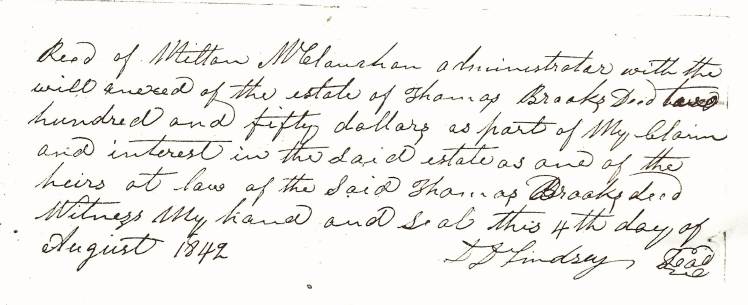 Recd of Milton McClanahan administrator with the
will anexed of the estate of Thomas Brooks Decd
hundred and fifty dollars as part of My Claim
and interest in the said estate as one of the
heirs at law of the said Thomas Brooks decd
Witness My hand and seal this 4th day of
August 1842 Lindsey Seal